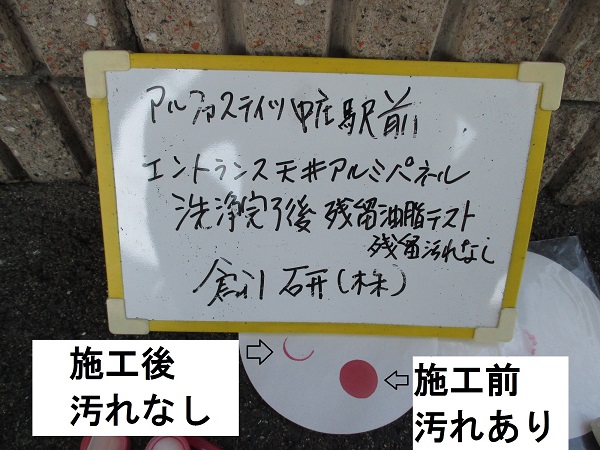 アルファステイツ中庄駅前
エントランス天井アルミパネル
洗浄完了後 残留油脂テスト
残留汚れなし
創研(株)
施工後
汚れなし
施工前
汚れあり